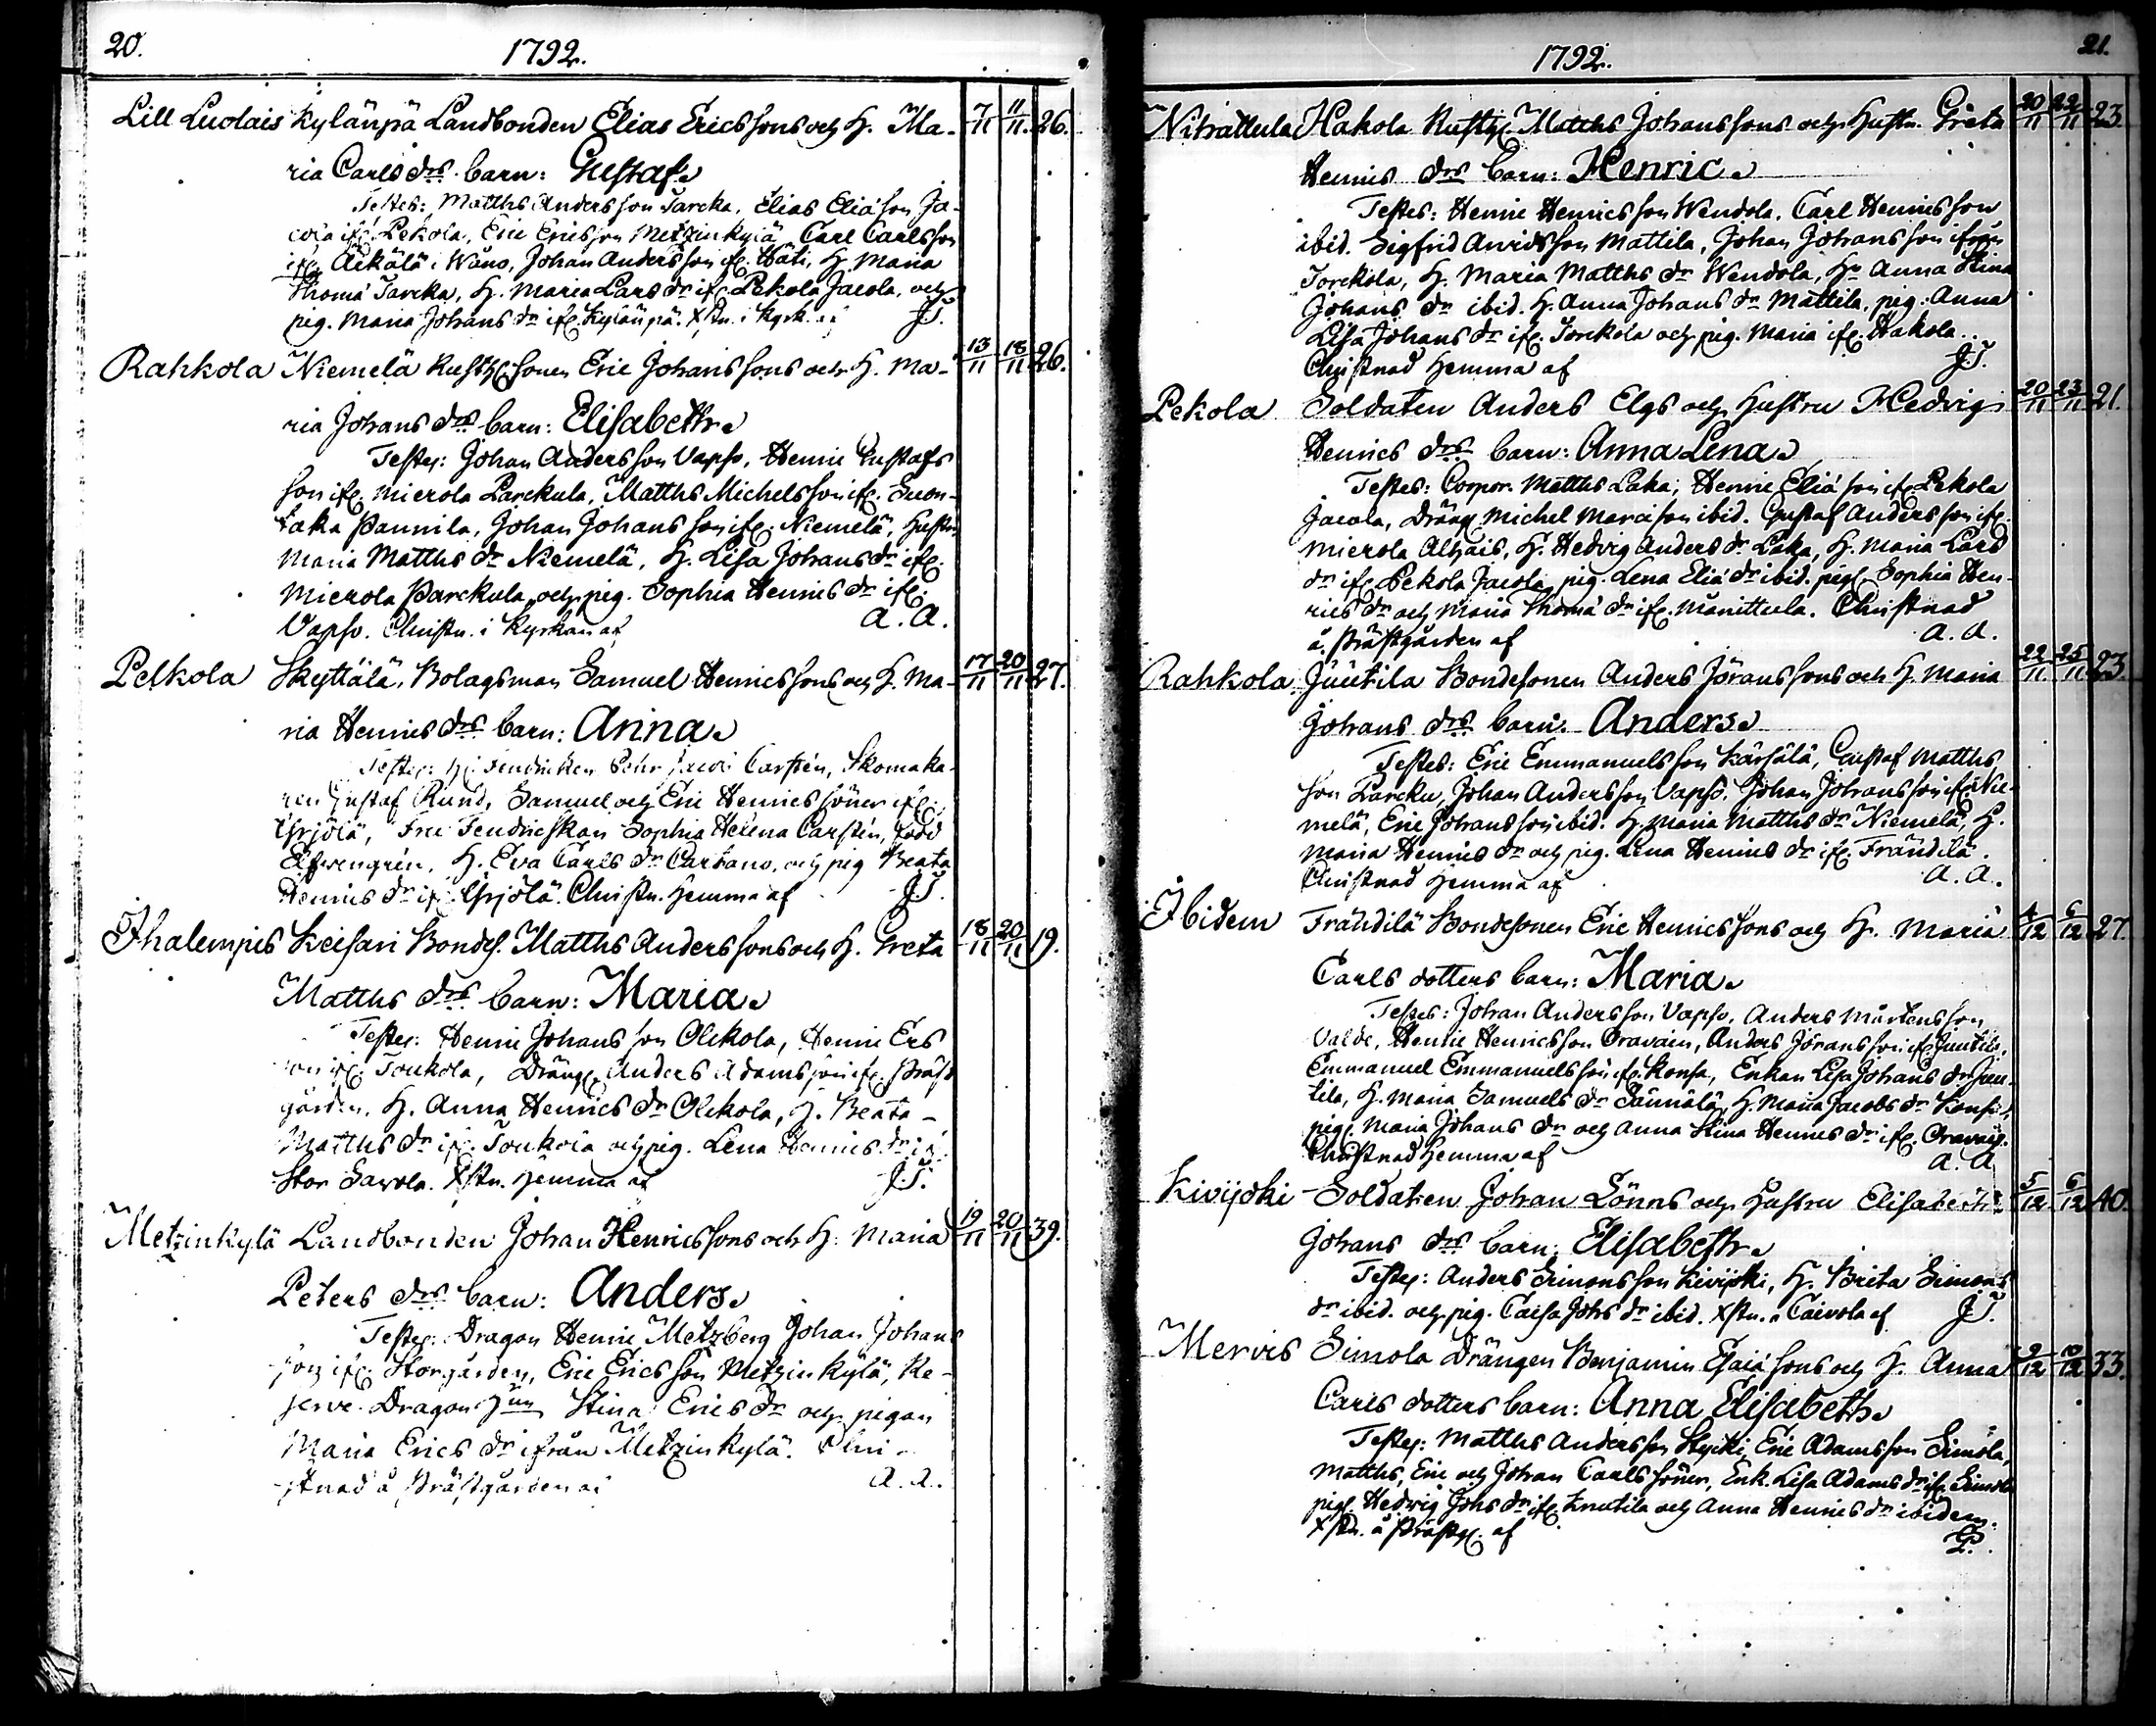 20.
1792.
Lill Luolais Kylänpä Landbonden Elias Ericssons och H. Ma- 7/11 11/11 26.
ria Carls drs barn: Gustaf.
Testes: Matths Andersson Jarcka, Elias Eliæson Ja-
cola if. Pekola, Eric Ericsson Metzinkylä, Carl Carlsson
ifr. Äikälä i Wåno, Johan Andersson if. Häti, H. Maria
Thomæ Jarcka, H. Maria Lars dr if. Pekola Jacola, och
pig. Maria Johans dr ifr. Kylänpä. Xstn. i Kyrk. af J.T.
Rahkola Niemelä Rusth. sonen Eric Johanssons och H. Ma- 13/11 18/11 26.
ria Johans drs barn: Elisabeth.
Testes: Johan Andersson Vapso, Henric Gustafs
son ifr. Mierola Parckula, Matths Michelsson ifr. Suon-
taka Pannila, Johan Johansson ifr. Niemelä, Hustr.
Maria Matths dr Niemelä, H. Lisa Johans dr ifr.
Mierola Parckula, och pig. Sophia Henrics dr ifr.
Vapso. Christn. i Kyrkan af A. A.
Pelkola Skyttälä, Bolagsman Samuel Henricssons och H. Ma- 17/11 20/11 27.
ria Henrics drs barn: Anna.
Testes: H. Fendricken Pehr Carstén, Skomaka-
ren Gustaf Rund, Samuel och Eric Henrics söner ifr.
Yrjölä, Fru Fendrickskan Sophia Helena Carstén, född
Elfwengrén, H. Eva Carls dr Cartano, och pig Beata
Henrics dr if. Yrjölä. Christn. hemma af J.T.
Ihalempis Keisari Bondes. Matths Anderssons och H. Greta 18/11 20/11 19.
Matths drs barn: Maria.
Testes: Henric Johansson Olckola, Henric Ers
son ifr. Toukola, Dräng. Anders Adamsson if. Präst
gården, H. Anna Henrics dr Olckola, H. Beata
Matths dr if. Toukola och pig. Lena Henrics dr if
Stor Sawola. Xstn. hemma af J.T.
Metzinkylä Landbonden Johan Henricssons och H. Maria 19/11 20/11 39.
Peters drs barn: Anders.
Testes: Dragon Henric Metzberg, Johan Johans
son ifr. Storgården, Eric Ericsson Metzinkylä, Re-
serve Dragon Hun Stina Erics dr och pigan
Maria Erics dr ifrån Metzinkylä. Chri-
stnad å Prästgården af A. A.
21.
1792.
Nihattula Hakola Rusth. Matths Johanssons och Hustr. Greta 20/11 22/11 23.
Henrics drs barn: Henric.
Testes: Henric Henricsson Wendola, Carl Henricsson
ibid. Sigfrid Anridsson Mattila, Johan Johansson ifrån
Torckola, H. Maria Matths dr Wendola, H. Anna Stina
Johans dr ibid. H. Anna Johans dr Mattila, pig. Anna
Lisa Johans dr ifr. Torckola och pig. Maria ifr. Hakola.
Christnad hemma af J.T.
Pekola Soldaten Anders Elgs och Hustru Hedvig 20/11 23/11 21.
Henrics drs barn: Anna Lena.
Testes: Corpor. Matths Laka, Henric Eliæson if. Pekola
Jacola, Dräng Michel Marcison ibid. Gustaf Andersson ifr.
Mierola Alhais, H. Hedvig Anders dr Laka, H. Maria Lars
dr if. Pekola Jacola, pig. Lena Eliæ dr ibid. pig. Sophia Hen-
rics dr och Maria Thomæ dr ifr. Mänittula. Christnad
å Prästgården af A. A.
Rahkola Juutila Bondesonen Anders Jöranssons och H. Maria 22/11 25/11 23.
Johans drs barn: Anders.
Testes: Eric Emmanuelsson Kärsälä, Gustaf Matths
son Parcku, Johan Andersson Vapso, Johan Johansson if. Nie-
melä, Eric Johansson ibid. H. Maria Matths dr Niemelä, H.
Maria Henrics dr och pig. Lena Henrics dr if. Frändilä.
Christnad hemma af A. A.
Ibidem Frändilä Bondesonen Eric Henricssons och H. Maria 4/12 6/12 27.
Carls dotters barn: Maria.
Testes: Johan Andersson Vapso, Anders Mårtensson
Valde, Henric Henricsson Oravain, Anders Jöransson if. Juutila,
Emmanuel Emmanuelsson if. Konsa, Enkan Lisa Johans dr Juu-
tila, H. Maria Samuels dr H. Maria Jacobs dr Konsa,
pig. Maria Johans dr och Anna Stina Henrics dr if. Oravais.
Christnad hemma af A. A.
Kivijoki Soldaten Johan Lönns och Hustru Elisabeth 5/12 6/12 40.
Johans drs barn: Elisabeth.
Testes: Anders Simonsson Kivijoki, H. Brita Simons
dr ibid. och pig. Caisa Johs dr ibid. Xstn. i Caivola af J.T.
Mervis Simola Drängen Benjamin Esaiæ sons och H. Anna 9/12 10/12 33.
Carls dotters barn: Anna Elisabeth.
Testes: Matths Andersson Eric Adamsson Simola,
Matths, Eric och Johan Carls söner, Enk. Lisa Adams dr if. Simola
pig. Hedwig Johs dr if. Knutila och Anna Henrics dr ibidem.
Xstn. å Prästg. af